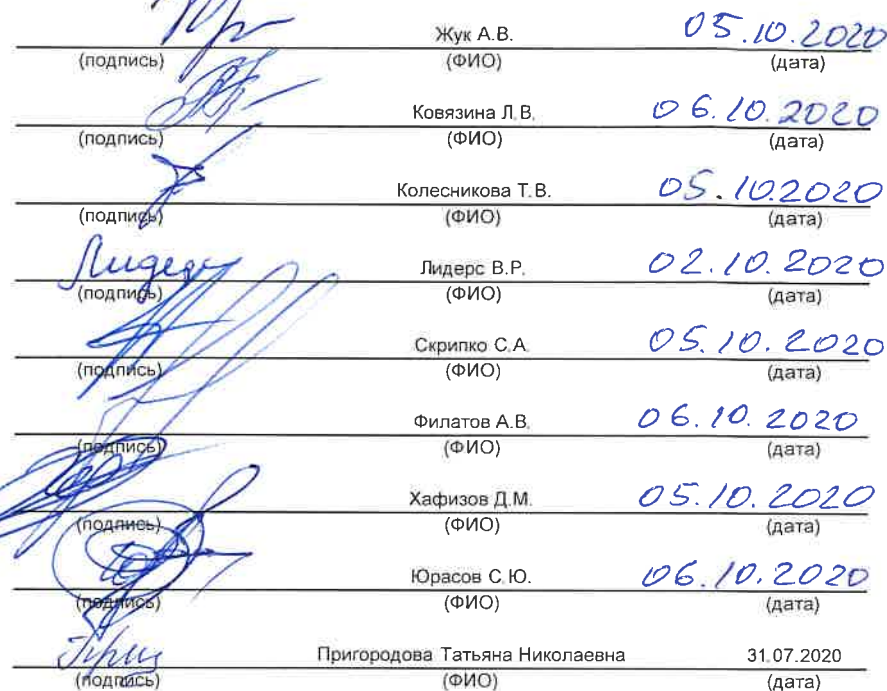 Жук А.В. 05.10.2020
(подпись) (ФИО) (дата)
Ковязина Л.В. 06.10.2020
(подпись) (ФИО) (дата)
Колесникова Т.В. 05.10.2020
(подпись) (ФИО) (дата)
Лидерс Лидерс В.Р. 02.10.2020
(подпись) (ФИО) (дата)
Скрипко С.А. 05.10.2020
(подпись) (ФИО) (дата)
Филатов А.В. 06.10.2020
(подпись) (ФИО) (дата)
Хафизов Д.М. 05.10.2020
(подпись) (ФИО) (дата)
Юрасов С.Ю. 06.10.2020
(подпись) (ФИО) (дата)
Пригородова Татьяна Николаевна 31.07.2020
(подпись) (ФИО) (дата)